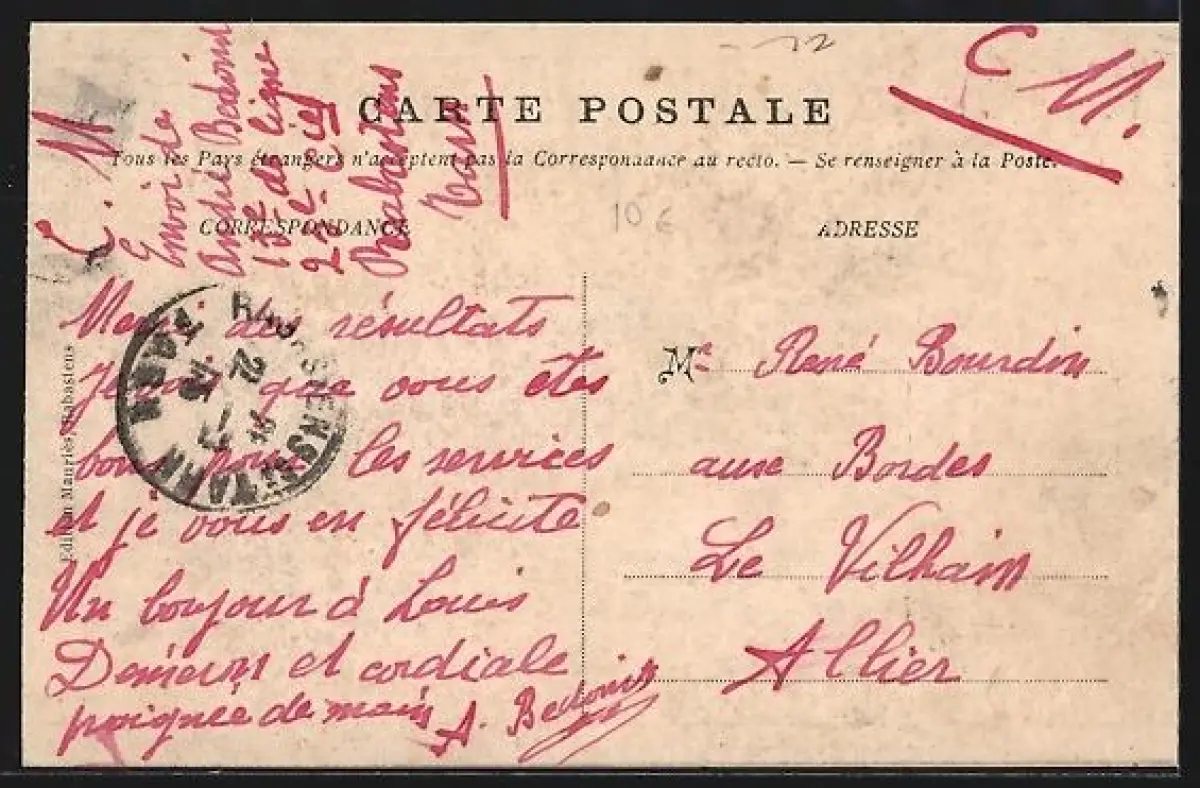 C. M.
Envoi de
André Bedoin
15e de ligne
22e Cie
Rabastens
Tarn
C. M.
CARTE POSTALE
Tous les Pays étrangers n'acceptent pas la Correspondance au recto. — Se renseigner à la Poste.
CORRESPONDANCE
ADRESSE
10 €
Merci des résultats
Je vois que vous êtes
bons pour les services
et je vous en félicite
Un bonjour à Louis
et cordiale
poignée de main
A. Bedoin
Mr René Bourdin
aux Bordes
Le Vilhain
Allier
RABASTENS TARN
TARN
22
Edition Mauriès, Rabastens